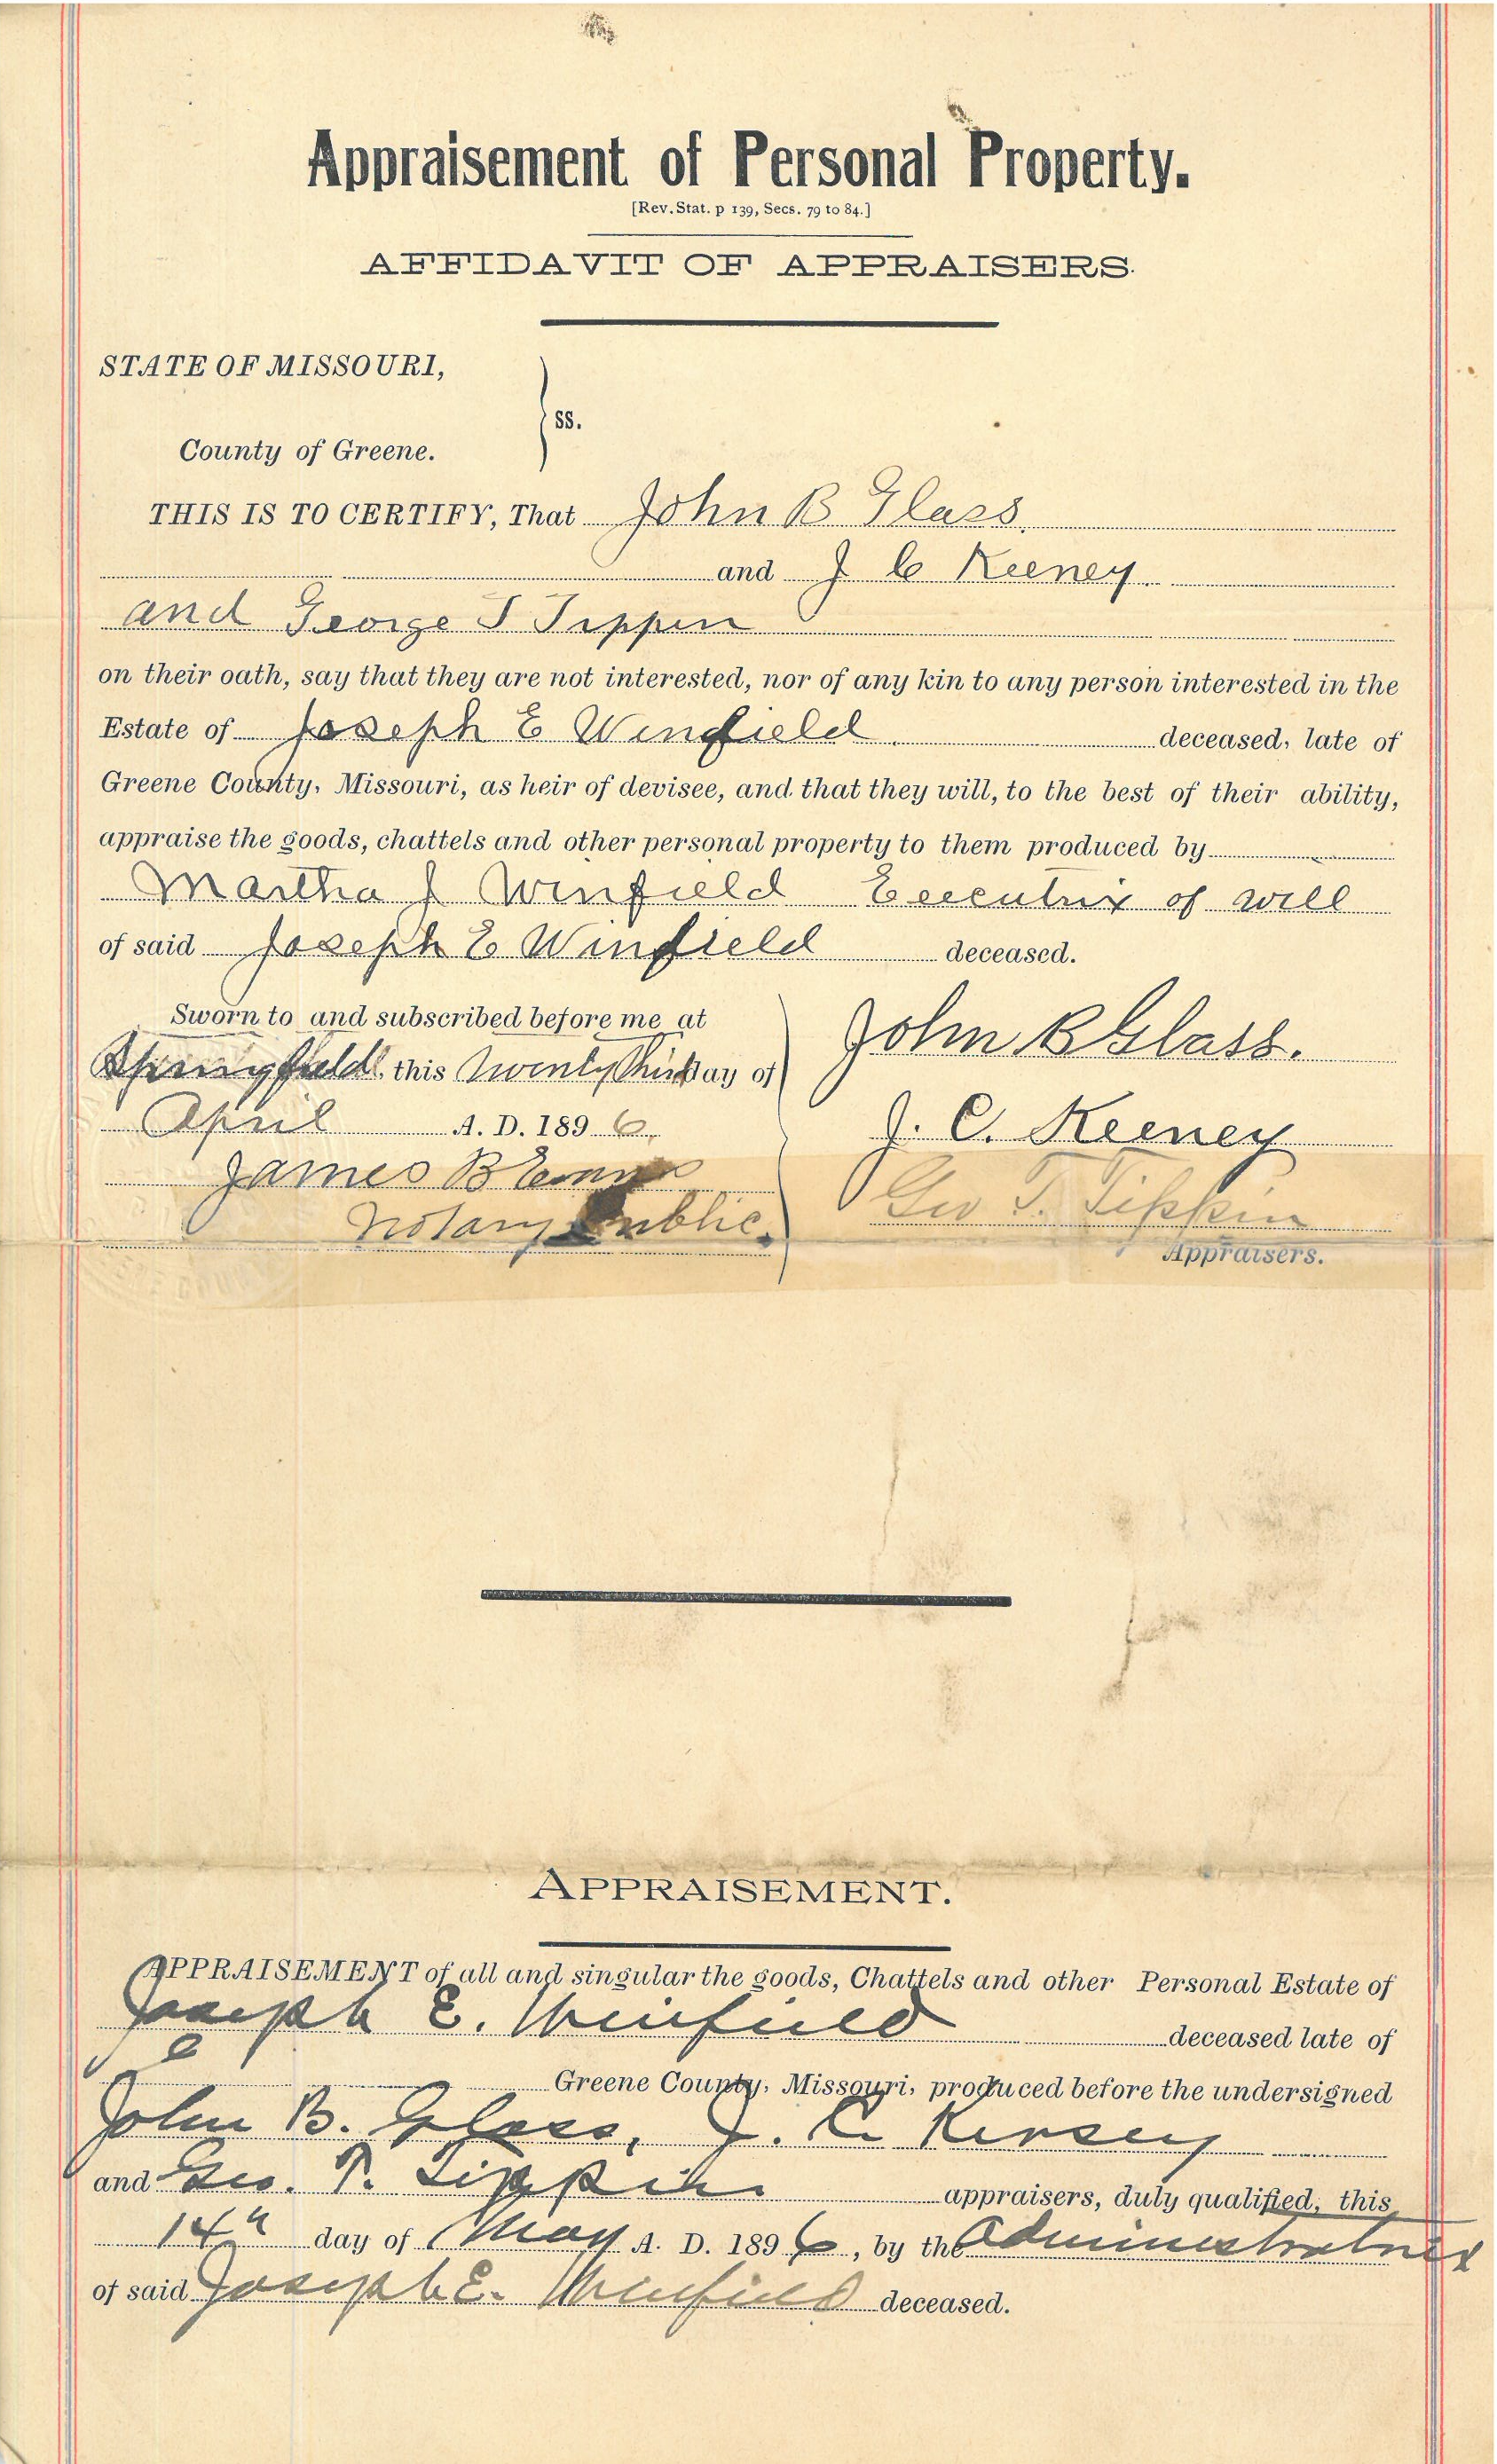 Appraisement of Personal Property.
[Rev. Stat. p 139, Secs. 79 to 84.]
AFFIDAVIT OF APPRAISERS.
STATE OF MISSOURI,
ss.
County of Greene.
THIS IS TO CERTIFY, That John B Glass.
and J C Keeney
and George T Tippin
on their oath, say that they are not interested, nor of any kin to any person interested in the
Estate of Joseph E Winfield deceased, late of
Greene County, Missouri, as heir of devisee, and that they will, to the best of their ability,
appraise the goods, chattels and other personal property to them produced by
Martha J Winfield Executrix of will
of said Joseph E Winfield deceased.
Sworn to and subscribed before me at
Springfield, this Twenty third day of
April A. D. 1896.
James B
Notary Public.
John B Glass.
J. C. Keeney
Geo T. Tippin
Appraisers.
APPRAISEMENT.
APPRAISEMENT of all and singular the goods, Chattels and other Personal Estate of
Joseph E. Winfield deceased late of
Greene County, Missouri, produced before the undersigned
John B. Glass, J. C. Kersey
and Geo. T. Tippin appraisers, duly qualified, this
14th day of May A. D. 1896, by the Administratrix
of said Joseph E. Winfield deceased.